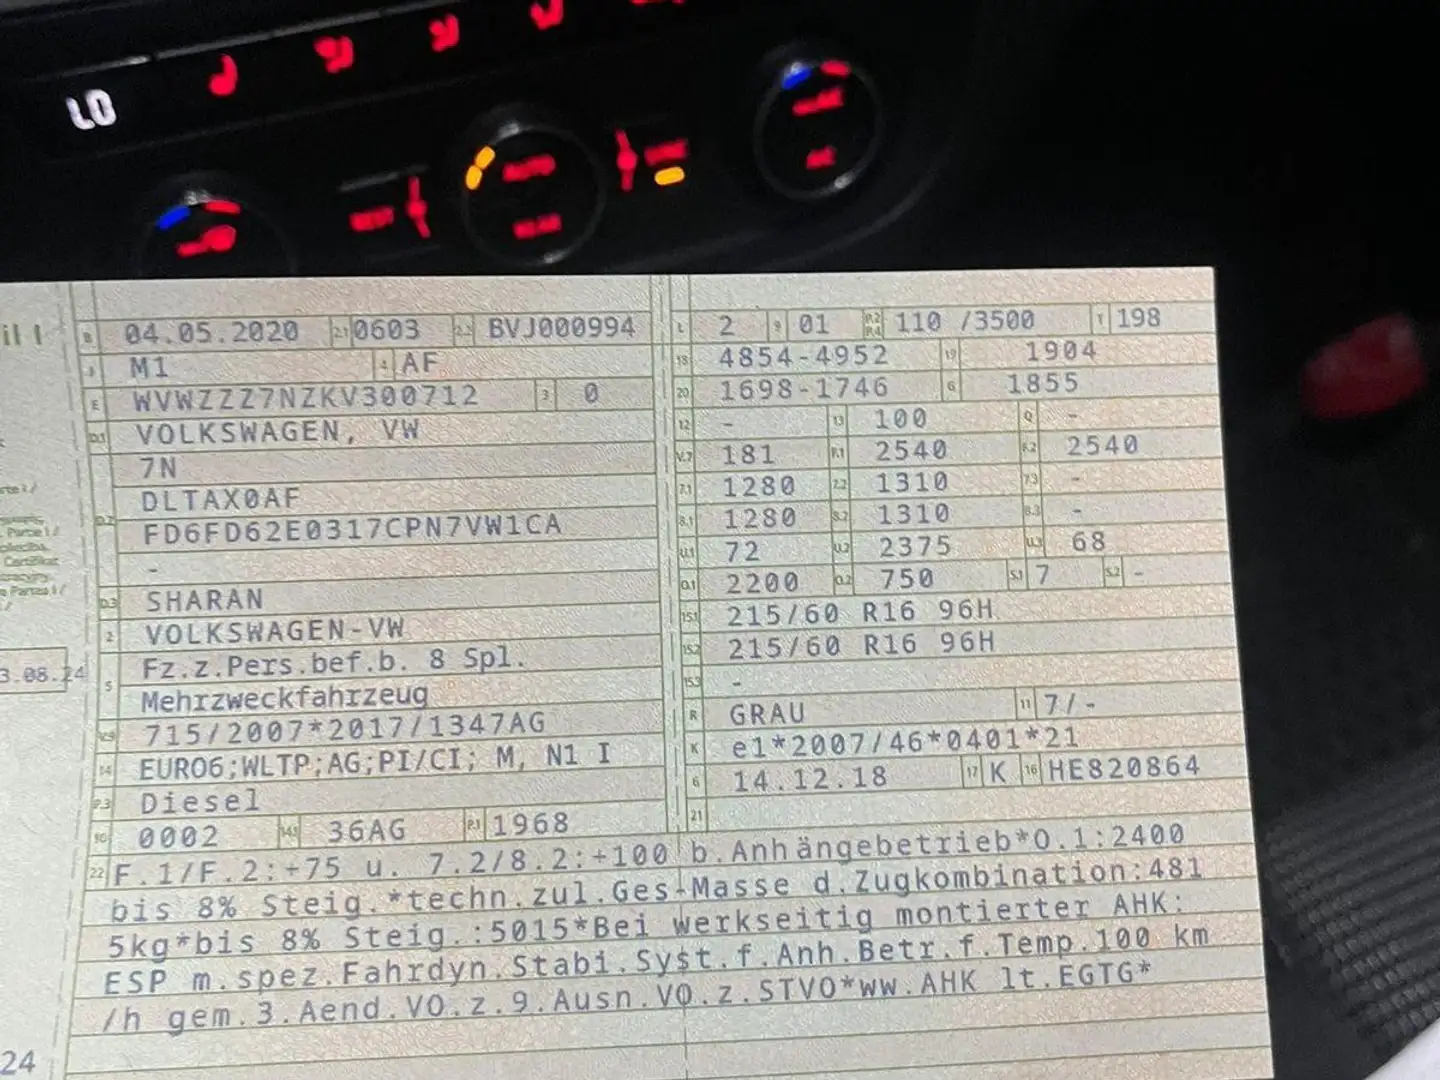 LO
AUTO
REST
REAR
AC
il I
B 04.05.2020 2.1 0603 2.2 BVJ000994
J M1 4 AF
E WVWZZZ7NZKV300712 3 0
D.1 VOLKSWAGEN, VW
7N
D.2 DLTAX0AF
FD6FD62E0317CPN7VW1CA
-
D.3 SHARAN
2 VOLKSWAGEN-VW
5 Fz.z.Pers.bef.b. 8 Spl.
Mehrzweckfahrzeug
V.9 715/2007*2017/1347AG
14 EURO6;WLTP;AG;PI/CI; M, N1 I
P.3 Diesel
10 0002 14.1 36AG P.1 1968
L 2 9 01 P.2 P.4 110 /3500 T 198
18 4854-4952 19 1904
20 1698-1746 G 1855
12 - 13 100 Q -
V.7 181 F.1 2540 F.2 2540
7.1 1280 7.2 1310 7.3 -
8.1 1280 8.2 1310 8.3 -
U.1 72 U.2 2375 U.3 68
O.1 2200 O.2 750 S.1 7 S.2 -
15.1 215/60 R16 96H
15.2 215/60 R16 96H
15.3 -
R GRAU 11 7/-
K e1*2007/46*0401*21
6 14.12.18 17 K 16 HE820864
21
22 F.1/F.2:+75 u. 7.2/8.2:+100 b.Anhängebetrieb*O.1:2400
bis 8% Steig.*techn.zul.Ges-Masse d.Zugkombination:481
5kg*bis 8% Steig.:5015*Bei werkseitig montierter AHK:
ESP m.spez.Fahrdyn.Stabi.Syst.f.Anh.Betr.f.Temp.100 km
/h gem.3.Aend.VO.z.9.Ausn.VO.z.STVO*ww.AHK lt.EGTG*
3.08.24
24